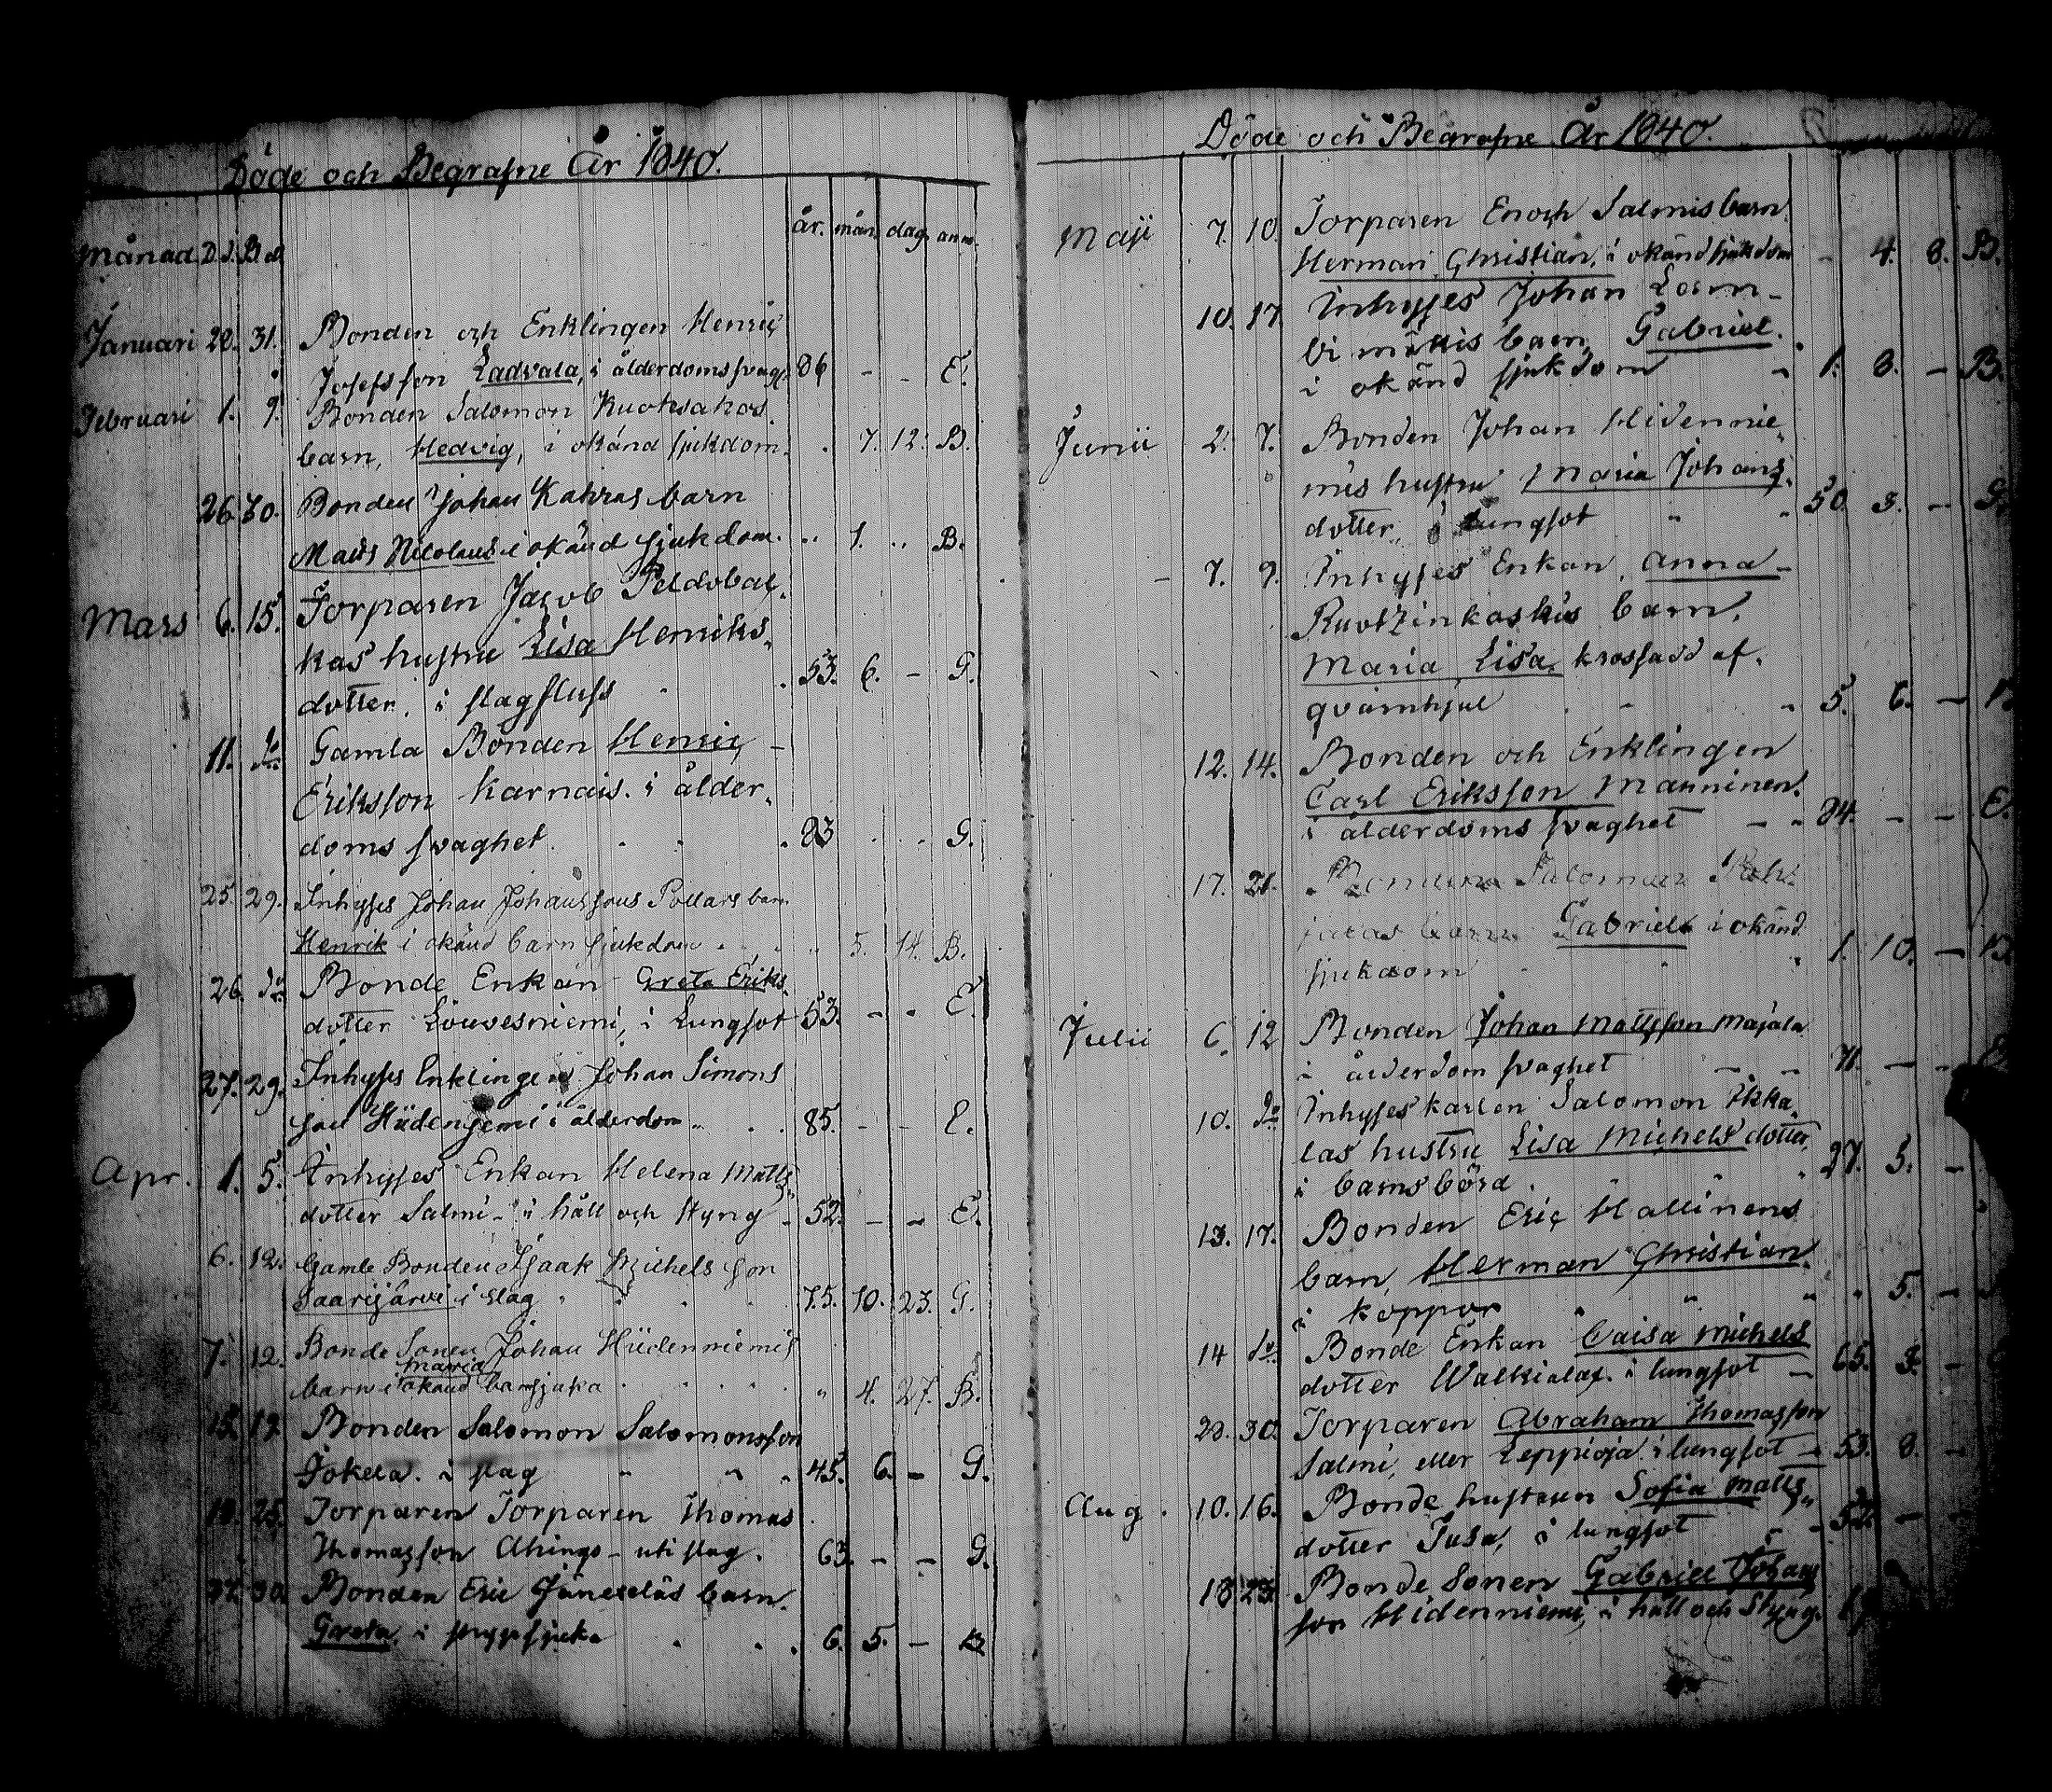 Döde och Begrafne År 1840.
Månad D d. B d år. mån. dag. anm.
Januari 22. 31. Bonden och Enklingen Henric
Josefsson Ladvala, i ålderdomssvagh. 86 - - E.
Februari 1. 9. Bonden Salomon Kuoksakos
barn, Hedvig, i okänd sjukdom. . 7. 12. B.
26. 30. Bonden Johan Kahras barn
Mats Nicolaus i okänd sjukdom. .. 1. .. B.
Mars 6. 15. Torparen Jacob Peldobac-
kas hustru Lisa Henriks-
dotter, i slagfluss 53. 6. - G.
11. do Gamla Bonden Henric
Eriksson Karnais. i ålder-
doms svaghet. 83 . . G.
25. 29. Inhyses Johan Johanssons Pollars barn
Henrik i okänd barnsjukdom " 5. 14. B.
26. do Bonde Enkan Greta Eriks-
dotter Louvesniemi, i Lungsot 53. - . E.
27. 29. Inhyses Enklingen Johan Simons
son Hiidenjemi i ålderdom 85. - - E.
Apr. 1. 5. Inhyses Enkan Helena Matts-
dotter Salmi - i håll och styng - 52. - - E.
6. 12. Gamle Bonden Isaak Michels son
Saarijärvi i slag 75. 10. 23. G.
7. 12. Bonde Sonen Johan Hiidenniemis
maria
barn i okänd barnsjuka " 4. 27. B.
15. 19. Bonden Salomon Salomonsson
Jokela. i slag 45. 6. - G.
25. Torparen Torparen Thomas
Thomasson Ahings - uti slag. 63. - - G.
30. Bonden Eric Jäneseläs barn.
Greta, i 6. 5. - B
Döde och Begrafne År 1840.
Maji 7. 10. Torparen Enoch Salmis barn
Herman Christian, i okänd sjukdom - 4. 8. B.
10. 17. Inhyses Johan
barn Gabriel.
i okänd sjukdom 1. 8. - B.
Junii 2. 7. Bonden Johan Hidennie-
mis hustru Maria Johans-
dotter, i Lungsot 50. 3. - G.
- 7. 9. Inhyses Enkan, Anna -
Ruotzinkoskis barn,
Maria Lisa, krossadd af.
qvarnhjul 5. 6. -
12. 14. Bonden och Enklingen
Carl Eriksson Manninen.
i ålderdoms svaghet - - 84. - - E.
17. 21. Bondens Salomon
barn Gabriel i okänd
sjukdom 1. 10. - B.
Julii 6. 12 Bonden Johan Mattsson Majala
i ålderdom svaghet - - 71. - - E
10. do Inhyseskarlen Salomon Ikka-
las hustru Lisa Michels dotter
i barnsbörd. 27. 5. -
13. 17. Bonden Eric Hallinens
barn, Herman Christian.
i koppor " " " . 5. -
14 do Bonde Enkan Caisa Michels
dotter Walkiala, i lungsot - 65. 3. -
23. 30. Torparen Abraham Thomasson
Salmi, eller Leppioja i lungsot - 53. 8. -
Aug. 10. 16. Bonde hustrun Sofia Matts-
dotter Jusa, i lungsot 52. - -
18 23. Bonde Sonen Gabriel Johans
son Hidenniemi, i håll och Styng.